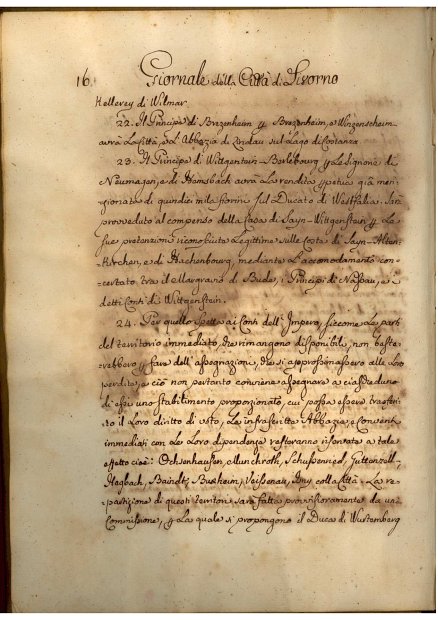 16. Giornale della Città di Livorno
Kellerey di Wilmar.
22. Il Principe di Brezenheim p Brezenheim, e Winzenscheim
avrà La Città, e L'Abbazia di Lindau sul Lago di Costanza
23. Il Principe di Wittgenstein-Berlebourg p Le Signorie di
Neumagen, e di Hemsbach avrà La rendita ppetua già men-
zionata di quindici mila fiorini sul Ducato di Westfalia. Sarà
provveduto al compenso della Casa di Sayn-Wittgenstein p Le
sue pretenzioni riconosciute Legittime sulle Contee di Sayn-Alten-
Kirchen, e di Hachenbourg, mediante L'accomodamento con-
certato tra il Margravio di Bade, i Principi di Nassau, e i
detti Conti di Wittgenstein.
24. Per quello Spetta ai Conti dell'Impero, siccome Le parti
del territorio immediato, che rimangono disponibili, non baste-
rebbero p fare dell'assegnazioni, che si approssimassero alle Loro
perdite, e ciò non pertanto conviene assegnare a ciascheduno
di essi uno stabilimento proporzionato, cui possa essere trasferi-
to il Loro diritto di voto, Le infrascritte Abbazie, e Conventi
immediati con Le Loro dipendenze resteranno riservate a tale
effetto cioè: Ochsenhausen, Munchroth, Schussenried, Guttenzell,
Hegbach, Baindt, Buxheim, Weissenau, Isny colla Città. La re-
partizione di questi territori sarà fatta provvisoriamente da una
Commissione, p La quale si propongono il Duca di Wurtemberg